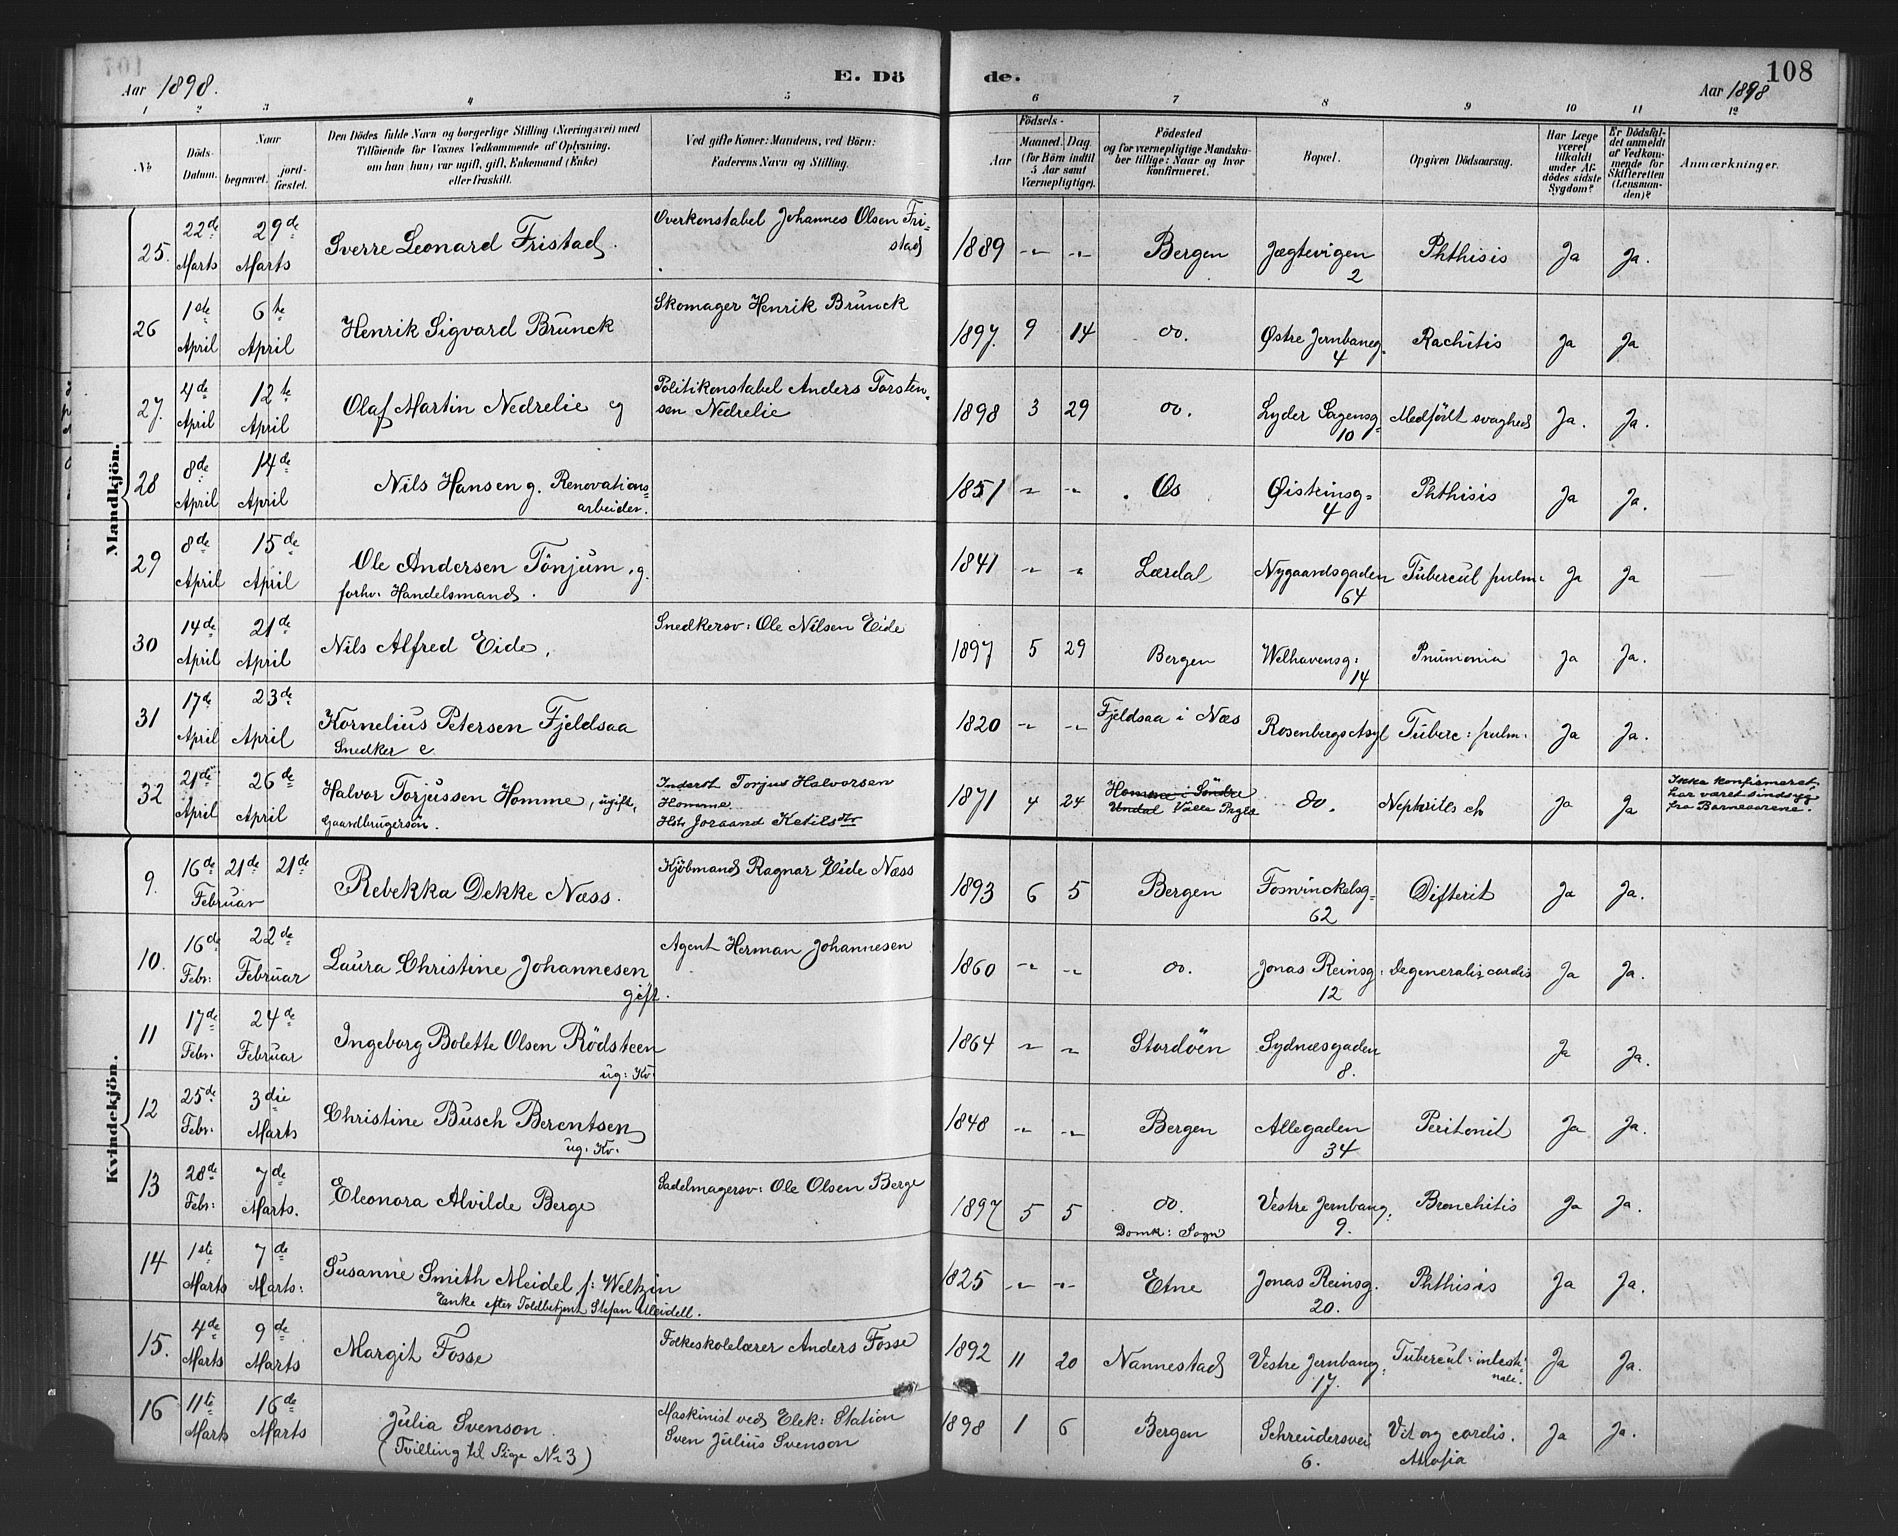 Aar 1898.
E. Dö
de.
108
Aar 1898
1 2 3 4 5 6 7 8 9 10 11 12
No
Döds-Datum.
Naar
begravet.
jord-fæstet.
Den Dödes fulde Navn og borgerlige Stilling (Næringsvei) med
Tilföiende for Voxnes Vedkommende af Oplysning,
om han (hun) var ugift, gift, Enkemand (Enke)
eller fraskilt.
Ved gifte Koner: Mandens, ved Börn:
Faderens Navn og Stilling.
Födsels-
Aar
Maaned. Dag
(for Börn indtil
5 Aar samt
Værnepligtige).
Födested
og for værnepligtige Mandska-
ber tillige: Naar og hvor
konfirmeret.
Bopæl.
Opgiven Dödsaarsag.
Har Læge
været
tilkaldt
under Af-
dödes sidste
Sygdom?
Er Dödsfal-
det anmeldt
af Vedkom-
mende for
Skifteretten
(Lensman-
den)?
Anmærkninger.
Mandkjön.
25. 22de Marts 29de Marts Sverre Leonard Fristad. Overkonstabel Johannes Olsen Fri=stad 1889 -"- -"- Bergen Jægtevigen 2 Phthisis Ja Ja.
26 1ste April 6te April Henrik Sigvard Brunck Skomager Henrik Brunck 1897. 9 14 do. Østre Jernbaneg. 4 Rachitis Ja Ja
27. 4de April 12te April Olaf Martin Nedrelie Politikonstabel Anders Torsten-sen Nedrelie 1898 3 29 do. Lyder Sagensg. 10 Medfödt svaghed Ja. Ja.
28 8de April 14de April Nils Hansen g. Renovations=arbeider. 1851 -"- -"- Os Øisteinsg= 4 Phthisis Ja Ja.
29 8de April 15de April Ole Andersen Tönjum, g. forhv. Handelsmand. 1841 -"- -"- Lærdal Nygaardsgaden 64 Tubercul pulm: Ja Ja
30 14de April 21de April Nils Alfred Eide, Snedkersv: Ole Nilsen Eide 1897 5 29 Bergen Welhavensg: 14 Pnumonia Ja Ja.
31 17de April 23de April Kornelius Petersen Fjeldsaa Snedker e 1820 -"- -"- Fjeldsaa i Næs Rosenbergs Asyl Tuberc: pulm: Ja Ja.
32 21de April 26de April Halvor Torjussen Homme, ugift, Gaardbrugersön. Inderst Torjus Halvorsen Homme. 1871 4 24 Homme i Söndre Undal Valle do. Ja Ja Ikke konfirmeret, har været sindssyg fra Barneaarene.
Kvindekjön.
9. 16de 21de 21de Februar Rebekka Dekke Næss. Kjöbmand Ragnar Eide Næss 1893 6 5 Bergen Fosvinckelsg= 62 Difterit Ja Ja.
10. 16de Febr: 22de Februar Laura Christine Johannesen gift. Agent Herman Johannesen 1860 -"- -"- do. Jonas Reinsg: 12 cordis Ja Ja.
11 17de Febr. 24de Februar Ingeborg Bolette Olsen Rödsteen ug: Kv: 1864 -"- -"- Stordöen Sydnæsgaden 8. Ja Ja.
12 25de Febr: 3die Marts Christine Busch Berentsen ug: Kv: 1848 -"- -"- Bergen Allegaden 34 Peritonit Ja Ja.
13 28de Febr: 7de Marts. Eleonora Alvilde Berge Sadelmagersv: Ole Olsen Berge 1897 5 5 do. Domk: Sogn Vestre Jernbang: 9. Bronchitis Ja Ja.
14 1ste Marts 7de Marts: Susanne Smith Meidel f: Weltzin Enke efter Toldbetjent Stefan Meidell. 1825 -"- -"- Etne Jonas Reinsg. 20. Phthisis Ja Ja.
15. 4de Marts 9de Marts Margit Fosse Folkeskolelærer Anders Fosse 1892 11 20 Nannestad Vestre Jernbang: 17. Tubercul: intesti-nale. Ja Ja.
16 11te Marts 16de Marts Julia Svenson. (Tvilling til Pige No 3) Maskinist ved Elek: Station Sven Julius Svenson 1898 1 6 Bergen Schreudersvei 6. Vit og cordis. Atrofia Ja Ja.